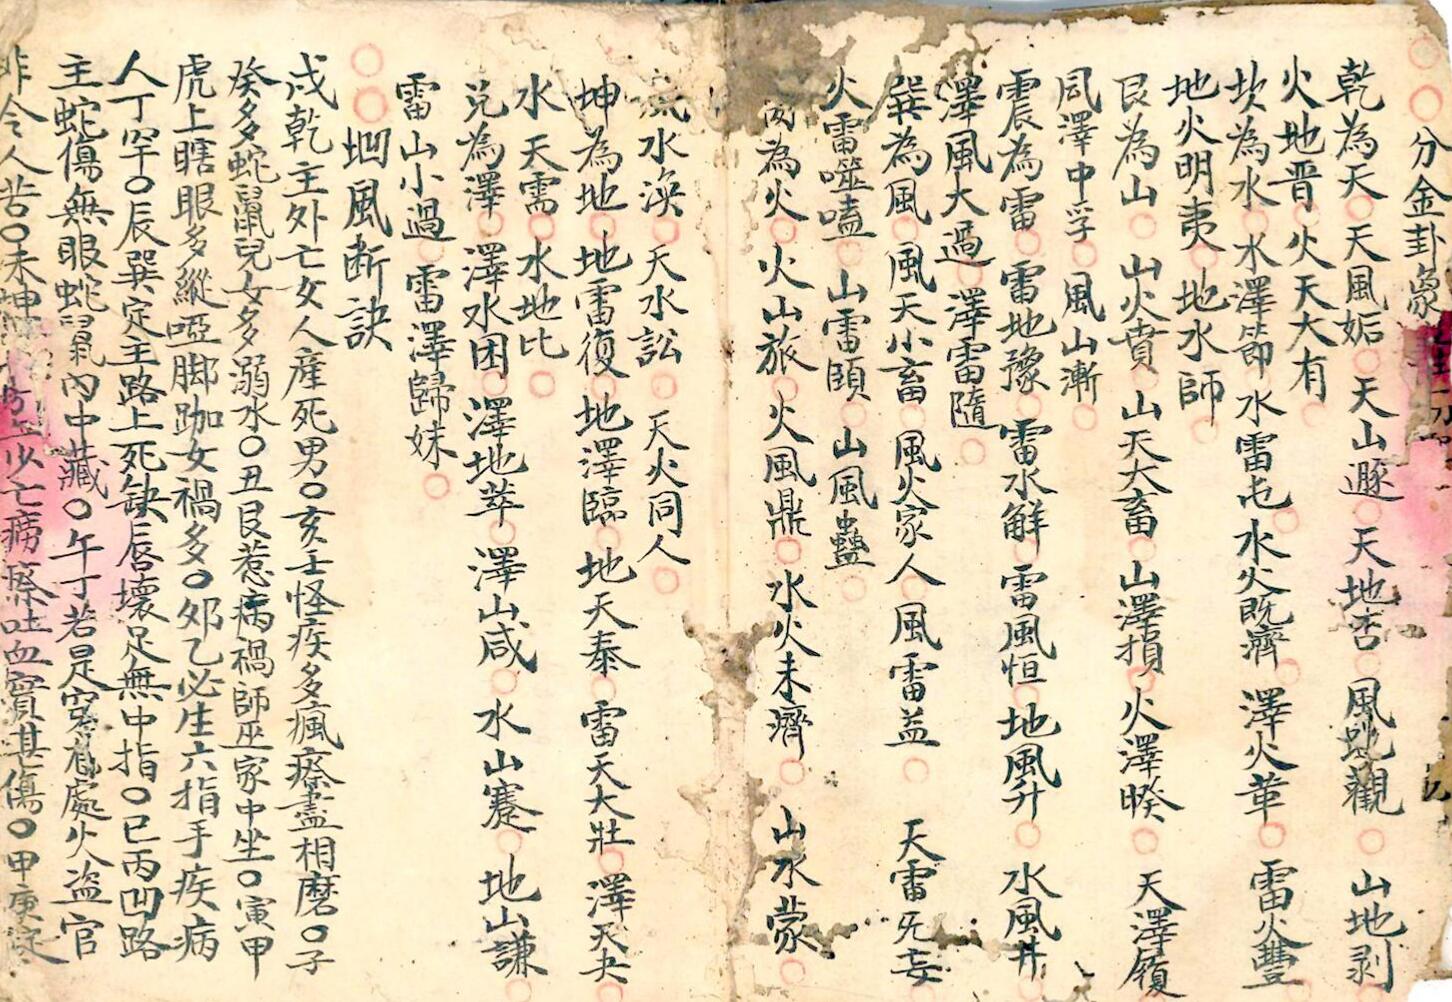 分金卦象
乾為天 天風姤 天山遯 天地否 風地觀 山地剥
火地晋 火天大有
坎為水 水澤節 水雷屯 水火既濟 澤火革 雷火豐
地火明夷 地水師
艮為山 山火賁 山天大畜 山澤損 火澤睽 天澤履
風澤中孚 風山漸
震為雷 雷地豫 雷水解 雷風恒 地風升 水風井
澤風大過 澤雷隨
巽為風 風天小畜 風火家人 風雷益 天雷旡妄
火雷噬嗑 山雷頤 山風蠱
為火 火山旅 火風鼎 水火未濟 山水蒙
水渙 天水訟 天火同人
坤為地 地雷復 地澤臨 地天泰 雷天大壯 澤天夬
水天需 水地比
兑為澤 澤水困 澤地萃 澤山咸 水山蹇 地山謙
雷山小過 雷澤歸妹
凹風断訣
戌乾主外亡女人産死男〇亥壬怪疾多瘋瘵盡相磨〇子
癸多蛇鼠兒女多溺水〇丑艮惹病禍師巫家中坐〇寅甲
虎上瞎眼多縱啞脚跏女禍多〇夘乙必生六指手疾病
人丁罕〇辰巽定主路上死缺唇壞足無中指〇巳丙凹路
主蛇傷無眼蛇鼠內中藏〇午丁若是穿處火盗官
非令人苦〇未坤少亡癆瘵吐血實其傷〇甲庚定